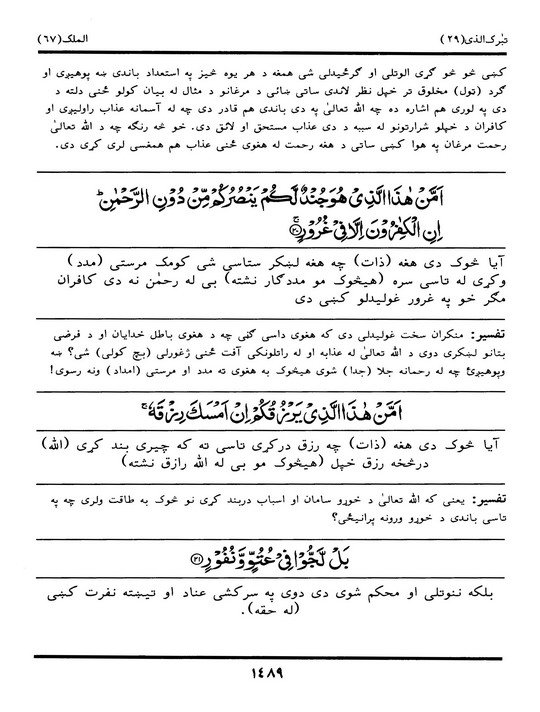 تبٰرک الذی (۲۹) الملک (۶۷)
کښی څو څو گړی الوتلی او گرځیدلی شی همغه د هر یوه څیز په استعداد باندی ښه پوهیږی او
گرد (ټول) مخلوق تر خپل نظر لاندی ساتی ښائی د مرغانو د مثال له بیان کولو ځنی دلته د
دی په لوری هم اشاره ده چه الله تعالیٰ په دی باندی هم قادر دی چه له آسمانه عذاب راولیږی او
کافران د خپلو شرارتونو له سببه د دی عذاب مستحق او لائق دی. خو څه رنگه چه د الله تعالیٰ
رحمت مرغان په هوا کښی ساتی د هغه رحمت له هغوی ځنی عذاب هم همغسی لری کړی دی.
اَمَّنْ هٰذَا الَّذِیْ هُوَ جُنْدٌ لَّكُمْ یَنْصُرُكُمْ مِّنْ دُوْنِ الرَّحْمٰنِ ؕ
اِنِ الْكٰفِرُوْنَ اِلَّا فِیْ غُرُوْرٍ ۚ۝۲۰
آیا څوک دی هغه (ذات) چه هغه لښکر ستاسی شی کومک مرستی (مدد)
وکړی له تاسی سره (هیڅوک مو مددگار نشته) بی له رحمٰن نه دی کافران
مگر خو په غرور غولیدلو کښی دی
تفسیر: منکران سخت غولیدلی دی که هغوی داسی گڼی چه د هغوی باطل خدایان او د فرضی
بتانو لښکری دوی د الله تعالیٰ له عذابه او له راتلونکی آفت ځنی ژغورلی (بچ کولی) شی؟ ښه
وپوهیږئ چه له رحمانه جلا (جدا) شوی هیڅوک به هغوی ته مدد او مرستی (امداد) ونه رسوی!
اَمَّنْ هٰذَا الَّذِیْ یَرْزُقُكُمْ اِنْ اَمْسَكَ رِزْقَهٗ ۚ
آیا څوک دی هغه (ذات) چه رزق درکړی تاسی ته که چیری بند کړی (الله)
درڅخه رزق خپل (هیڅوک مو بی له الله رازق نشته)
تفسیر: یعنی که الله تعالیٰ د خوړو سامان او اسباب دربند کړی نو څوک به طاقت ولری چه په
تاسی باندی د خوړو ورونه پرانیځی؟
بَلْ لَّجُّوْا فِیْ عُتُوٍّ وَّنُفُوْرٍ ۝۲۱
بلکه ننوتلی او محکم شوی دی دوی په سرکشی عناد او تیښته نفرت کښی
(له حقه).
۱۴۸۹